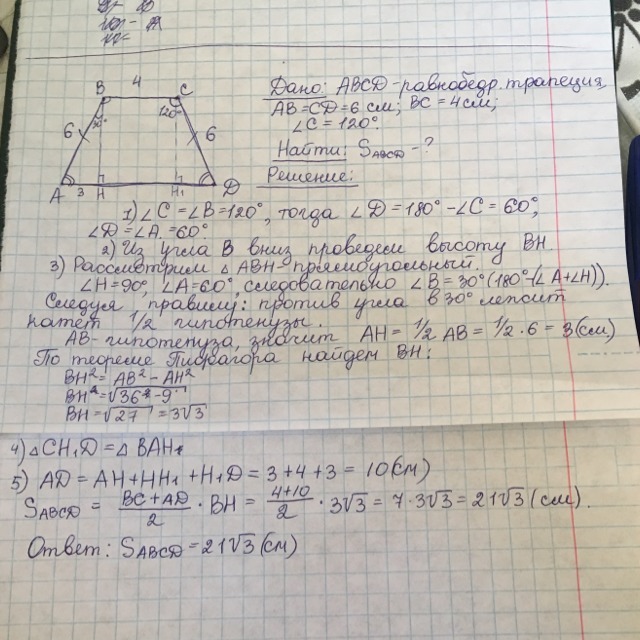 B 4 C
30° 120°
6 6
A 3 H H₁ D
Дано: ABCD - равнобедр. трапеция,
AB = CD = 6 см; BC = 4 см;
∠C = 120°.
Найти: S_ABCD - ?
Решение:
1) ∠C = ∠B = 120°, тогда ∠D = 180° - ∠C = 60°,
∠D = ∠A = 60°
2) Из угла B вниз проведем высоту BH.
3) Рассмотрим △ ABH - прямоугольный.
∠H = 90°, ∠A = 60°, следовательно ∠B = 30° (180° - (∠A + ∠H)).
Следуя правилу: против угла в 30° лежит
катет 1/2 гипотенузы.
AB - гипотенуза, значит AH = 1/2 AB = 1/2 · 6 = 3 (см)
По теореме Пифагора найдем BH:
BH² = AB² - AH²
BH² = √36² - 9
BH = √27 = 3√3
4) △CH₁D = △ BAH₁
5) AD = AH + HH₁ + H₁D = 3 + 4 + 3 = 10 (см)
S_ABCD = (BC + AD)/2 · BH = (4+10)/2 · 3√3 = 7 · 3√3 = 21√3 (см).
Ответ: S_ABCD = 21√3 (см)